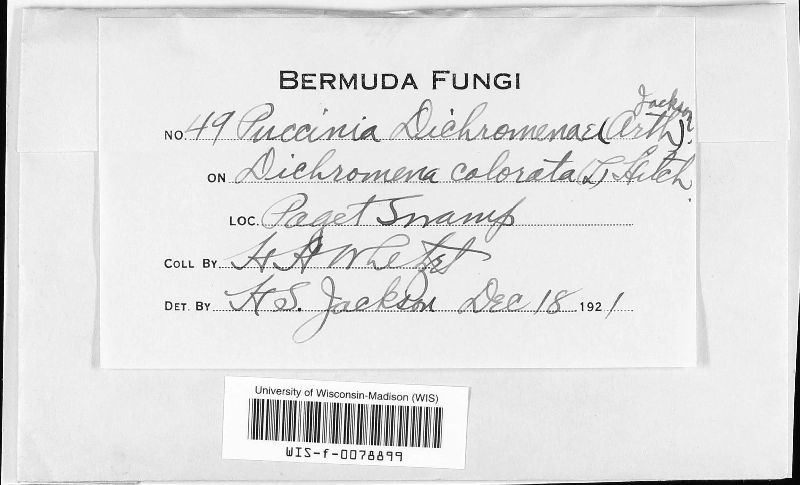 BERMUDA FUNGI
NO. 49 Puccinia Dichromenae (Arth.) Jackson.
ON Dichromena colorata (L) Hitch.
LOC. Paget Swamp
COLL BY H H Whetzel
DET. BY H S. Jackson Dec 18 1921
University of Wisconsin-Madison (WIS)
WIS-f-0078899